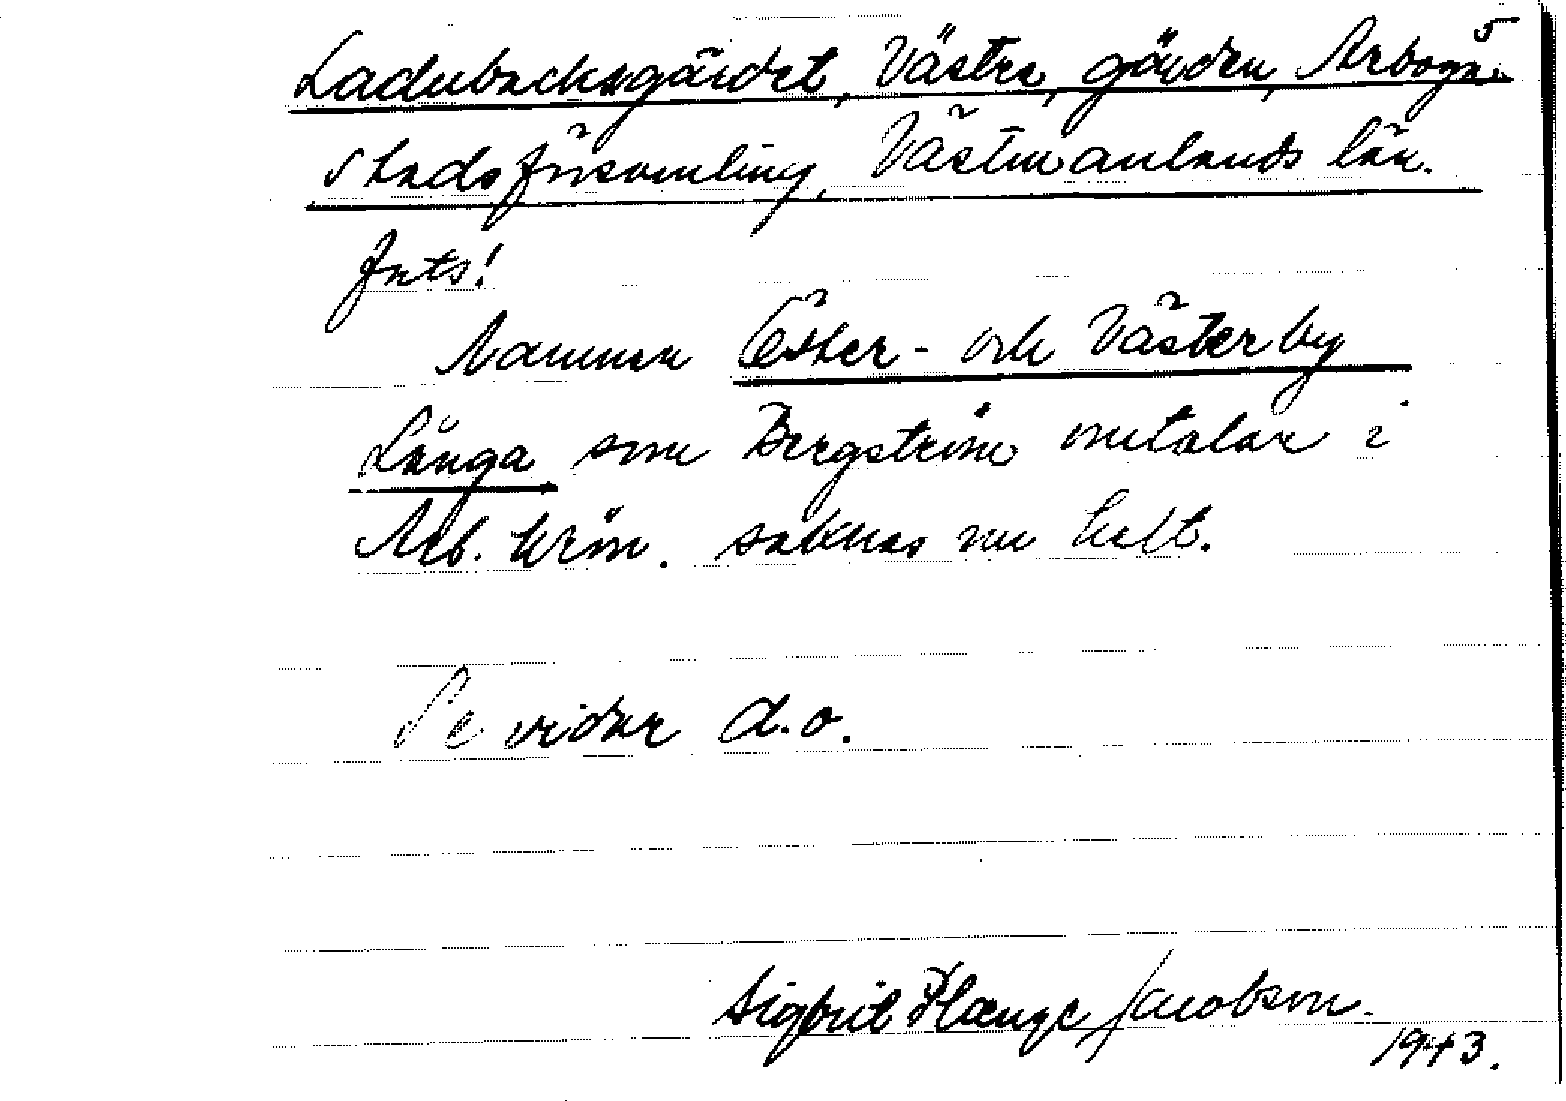 5
Ladubacksgärdet, Västra, gärden, Arboga
stadsförsamling, Västmanlands län.
Forts!
Namnen Öster- och Västerby
Långa som Bergström omtalar i
Arb. krön. saknas nu helt.
Se vidare d.o.
Sigbrit Plænge Jacobson.
1943.